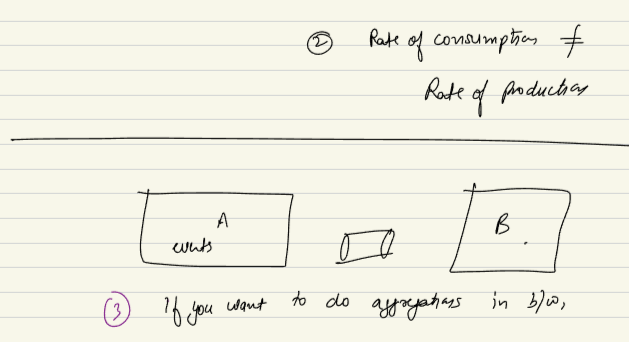 ② Rate of consumption ≠
Rate of production
A
events
B
③ If you want to do aggregations in b/w,